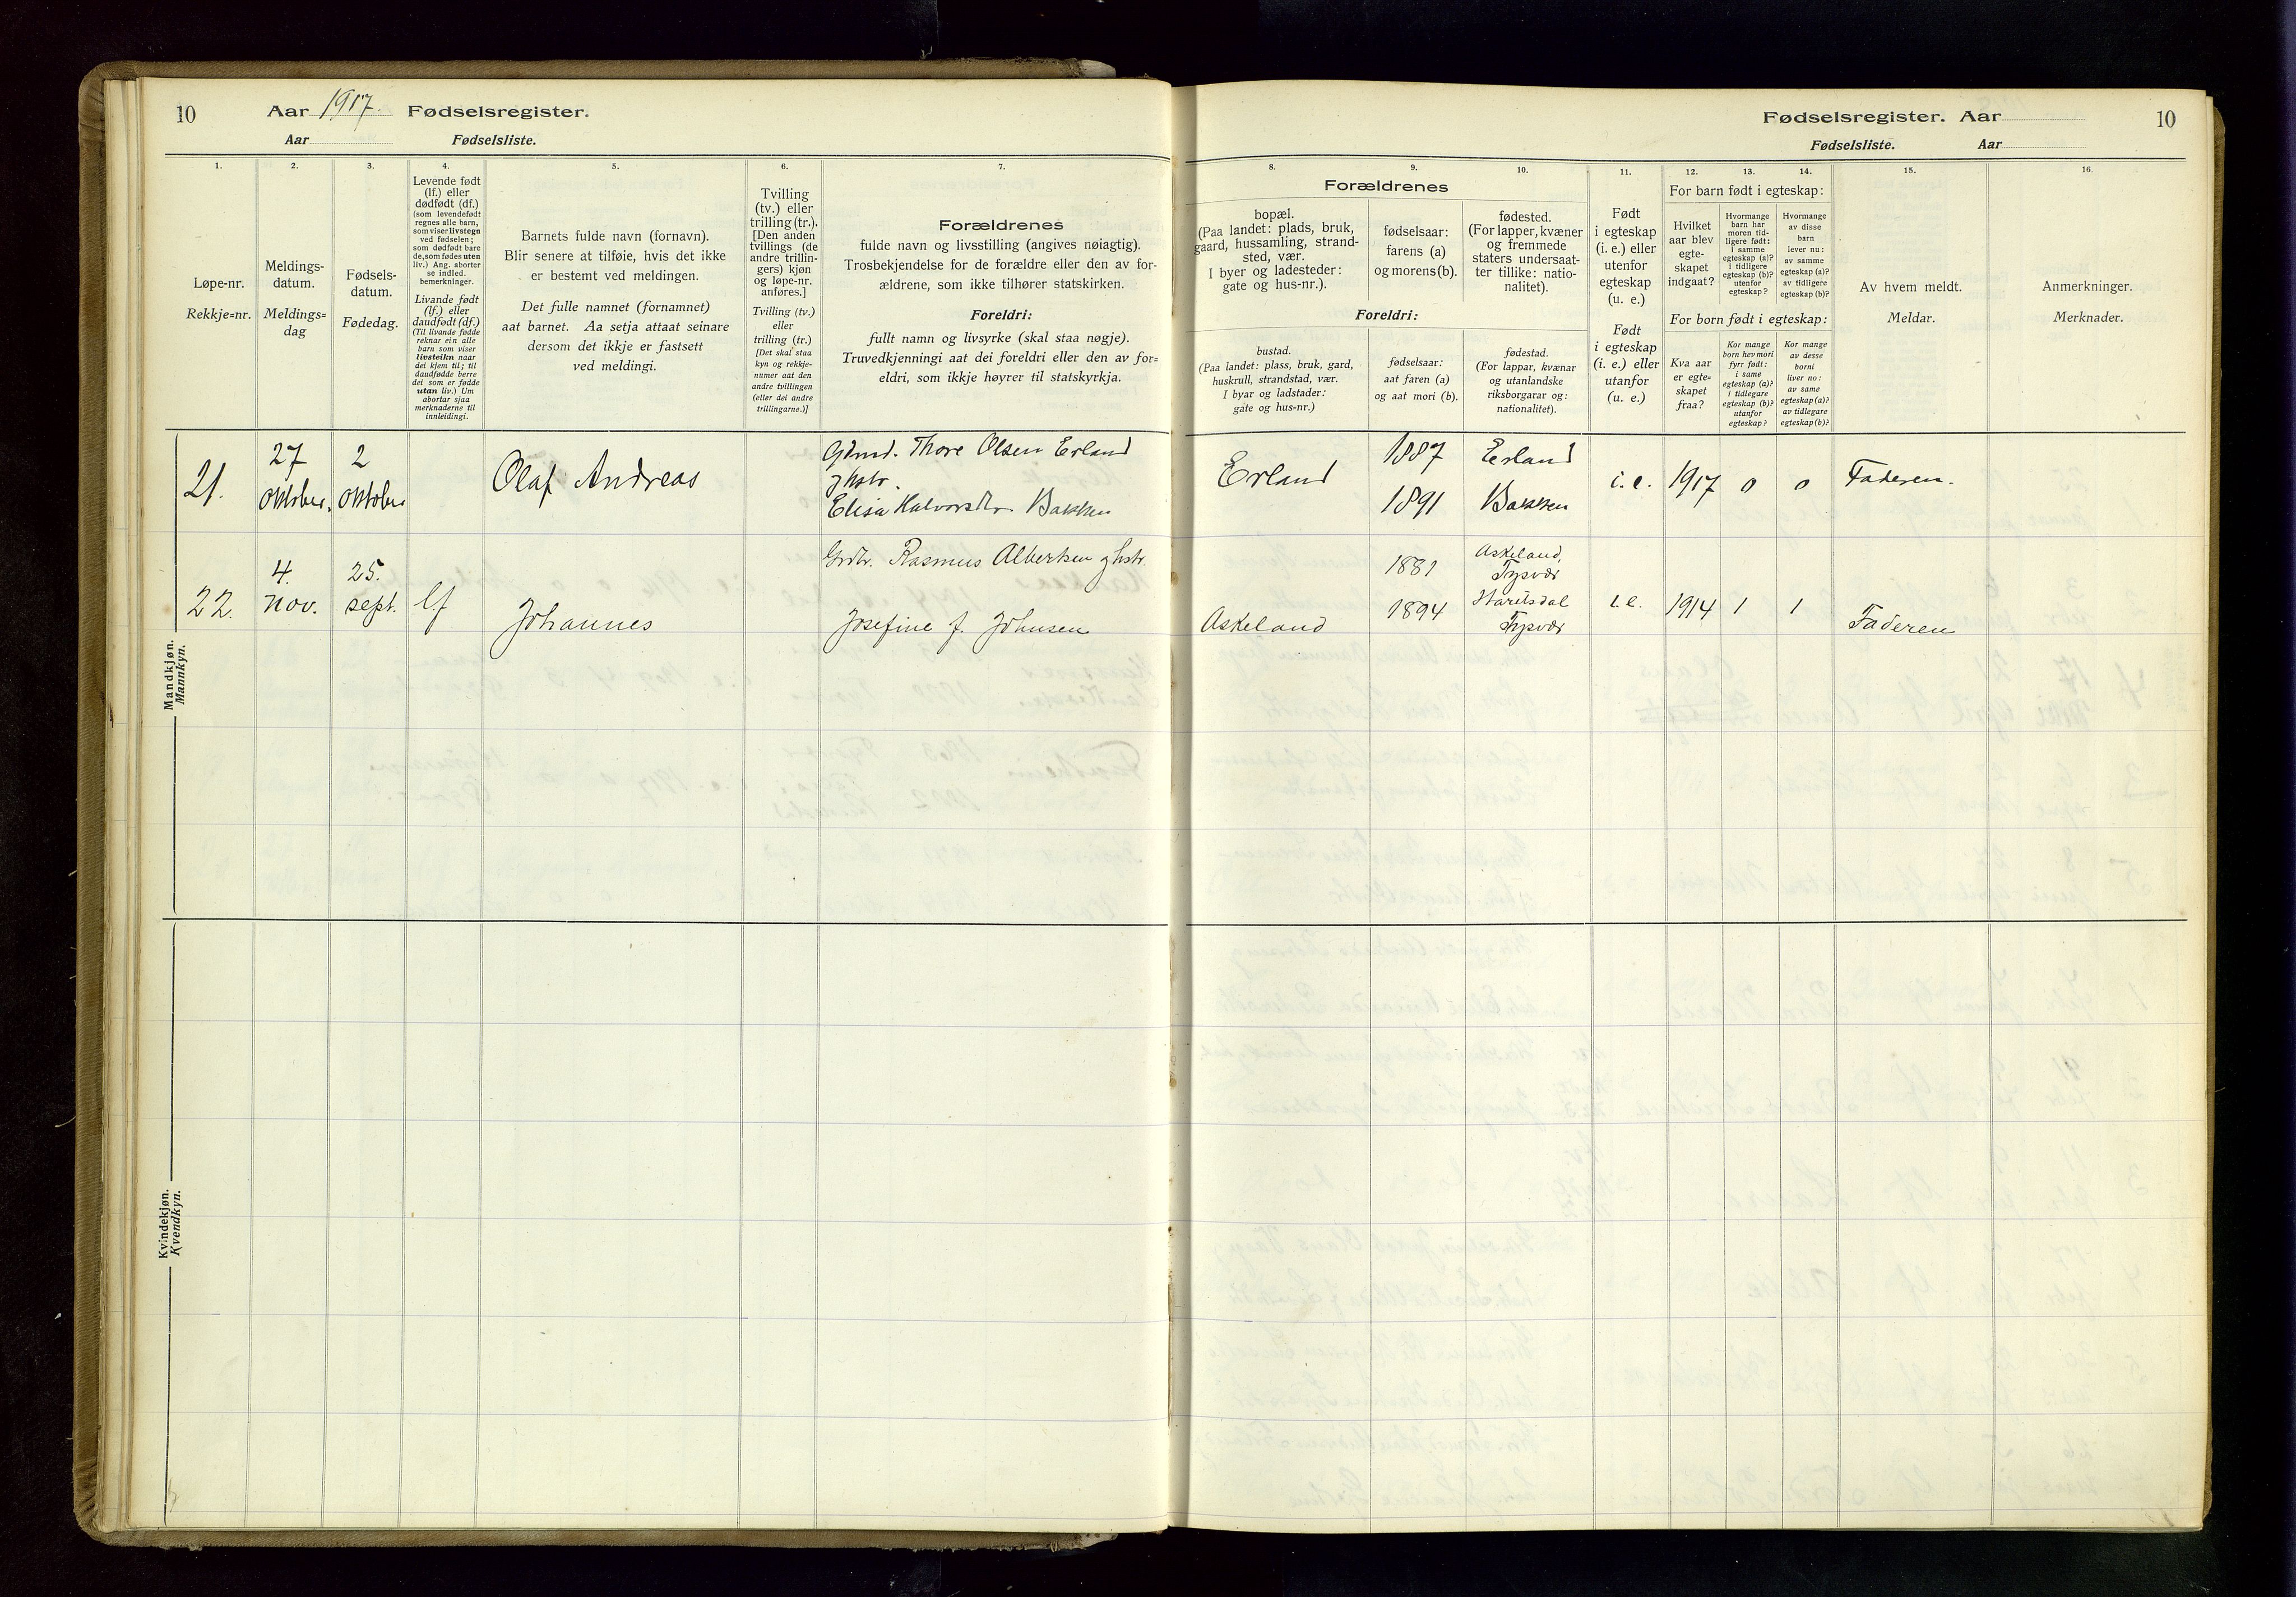 10 Aar 1917. Fødselsregister.
Aar Fødselsliste.
1.
Løpe-nr.
Rekkje=nr.
2.
Meldings-
datum.
Meldings=
dag
3.
Fødsels-
datum.
Fødedag.
4.
Levende født
(lf.) eller
dødfødt (df.)
(som levendefødt
regnes alle barn,
som viser livstegn
ved fødselen;
som dødfødt bare
de, som fødes uten
liv.) Ang. aborter
se indled.
bemerkninger.
Livande født
(lf.) eller
daudfødt (df.)
(Til livande fødde
reknar ein alle
barn som viser
livsteikn naar
dei kjem til; til
daudfødde berre
dei som er fødde
utan liv.) Um
abortar sjaa
merknaderne til
innleidingi.
5.
Barnets fulde navn (fornavn).
Blir senere at tilføie, hvis det ikke
er bestemt ved meldingen.
Det fulle namnet (fornamnet)
aat barnet. Aa setja attaat seinare
dersom det ikkje er fastsett
ved meldingi.
6.
Tvilling
(tv.) eller
trilling (tr.).
[Den anden
tvillings (de
andre trillin-
gers) kjøn
og løpe-nr.
anføres.]
Tvilling (tv.)
eller
trilling (tr.)
[Det skal staa
kyn og rekkje-
numer aat den
andre tvillingen
(eller dei andre
trillingarne.)]
7.
Forældrenes
fulde navn og livsstilling (angives nøiagtig).
Trosbekjendelse for de forældre eller den av for-
ældrene, som ikke tilhører statskirken.
Foreldri:
fullt namn og livsyrke (skal staa nøgje).
Truvedkjenningi aat dei foreldri eller den av for=
eldri, som ikkje høyrer til statskyrkja.
Mandkjøn.
Mannkyn.
21.
27
oktober.
2
oktober
Olaf Andreas
Gbrd. Thore Olsen Erland
g hstr.
Elisa Halvorsdtr Bakken
22.
4.
nov.
25.
sept.
lf
Johannes
Grdbr. Rasmus Albertsen g hstr.
Josefine f. Johnsen
Kvindekjøn.
Kvendkyn.
Fødselsregister. Aar 10
Fødselsliste. Aar
Forældrenes
8.
bopæl.
(Paa landet: plads, bruk,
gaard, hussamling, strand-
sted, vær.
I byer og ladesteder:
gate og hus-nr.).
9.
fødselsaar:
farens (a)
og morens (b).
10.
fødested.
(For lapper, kvæner
og fremmede
staters undersaat-
ter tillike: natio-
nalitet).
Foreldri:
bustad.
(Paa landet: plass, bruk, gard,
huskrull, strandstad, vær.
I byar og ladstader:
gate og hus=nr.)
fødselsaar:
aat faren (a)
og aat mori (b).
fødestad.
(For lappar, kvænar
og utanlandske
riksborgarar og:
nationalitet).
11.
Født
i egteskap
(i. e.) eller
utenfor
egteskap
(u. e.)
Født
i egteskap
(i. e.) eller
utanfor
(u. e.)
12. 13. 14.
For barn født i egteskap:
Hvilket
aar blev
egte-
skapet
indgaat?
Hvormange
barn har
moren tid-
ligere født:
i samme
egteskap (a)?
i tidligere
egteskap (b)?
utenfor
egteskap?
Hvormange
av disse
barn
lever nu:
av samme
egteskap (a)?
av tidligere
egteskap (b)?
For born født i egteskap:
Kva aar
er egte=
skapet
fraa?
Kor mange
born hev mori
fyrr født:
i same
egteskap (a)?
i tidlegare
egteskap (b)?
utanfor
egteskap?
Kor mange
av desse
borni
liver no:
av same
egteskap (a)?
av tidlegare
egteskap (b)?
15.
Av hvem meldt.
Meldar.
16.
Anmerkninger.
Merknader.
Erland
1887
1891
Erland
Bakken
i. e. 1917 0 0 Faderen.
Askeland
1881
1894
Askeland,
Tysvær
Tysvær
i. e. 1914 1 1 Faderen